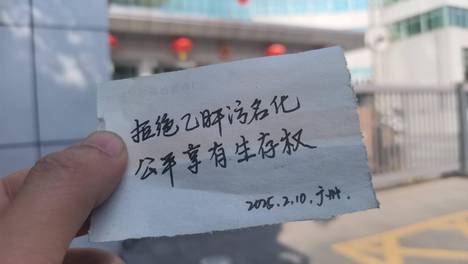 拒绝乙肝污名化
公平享有生存权
2025.2.10.于州.